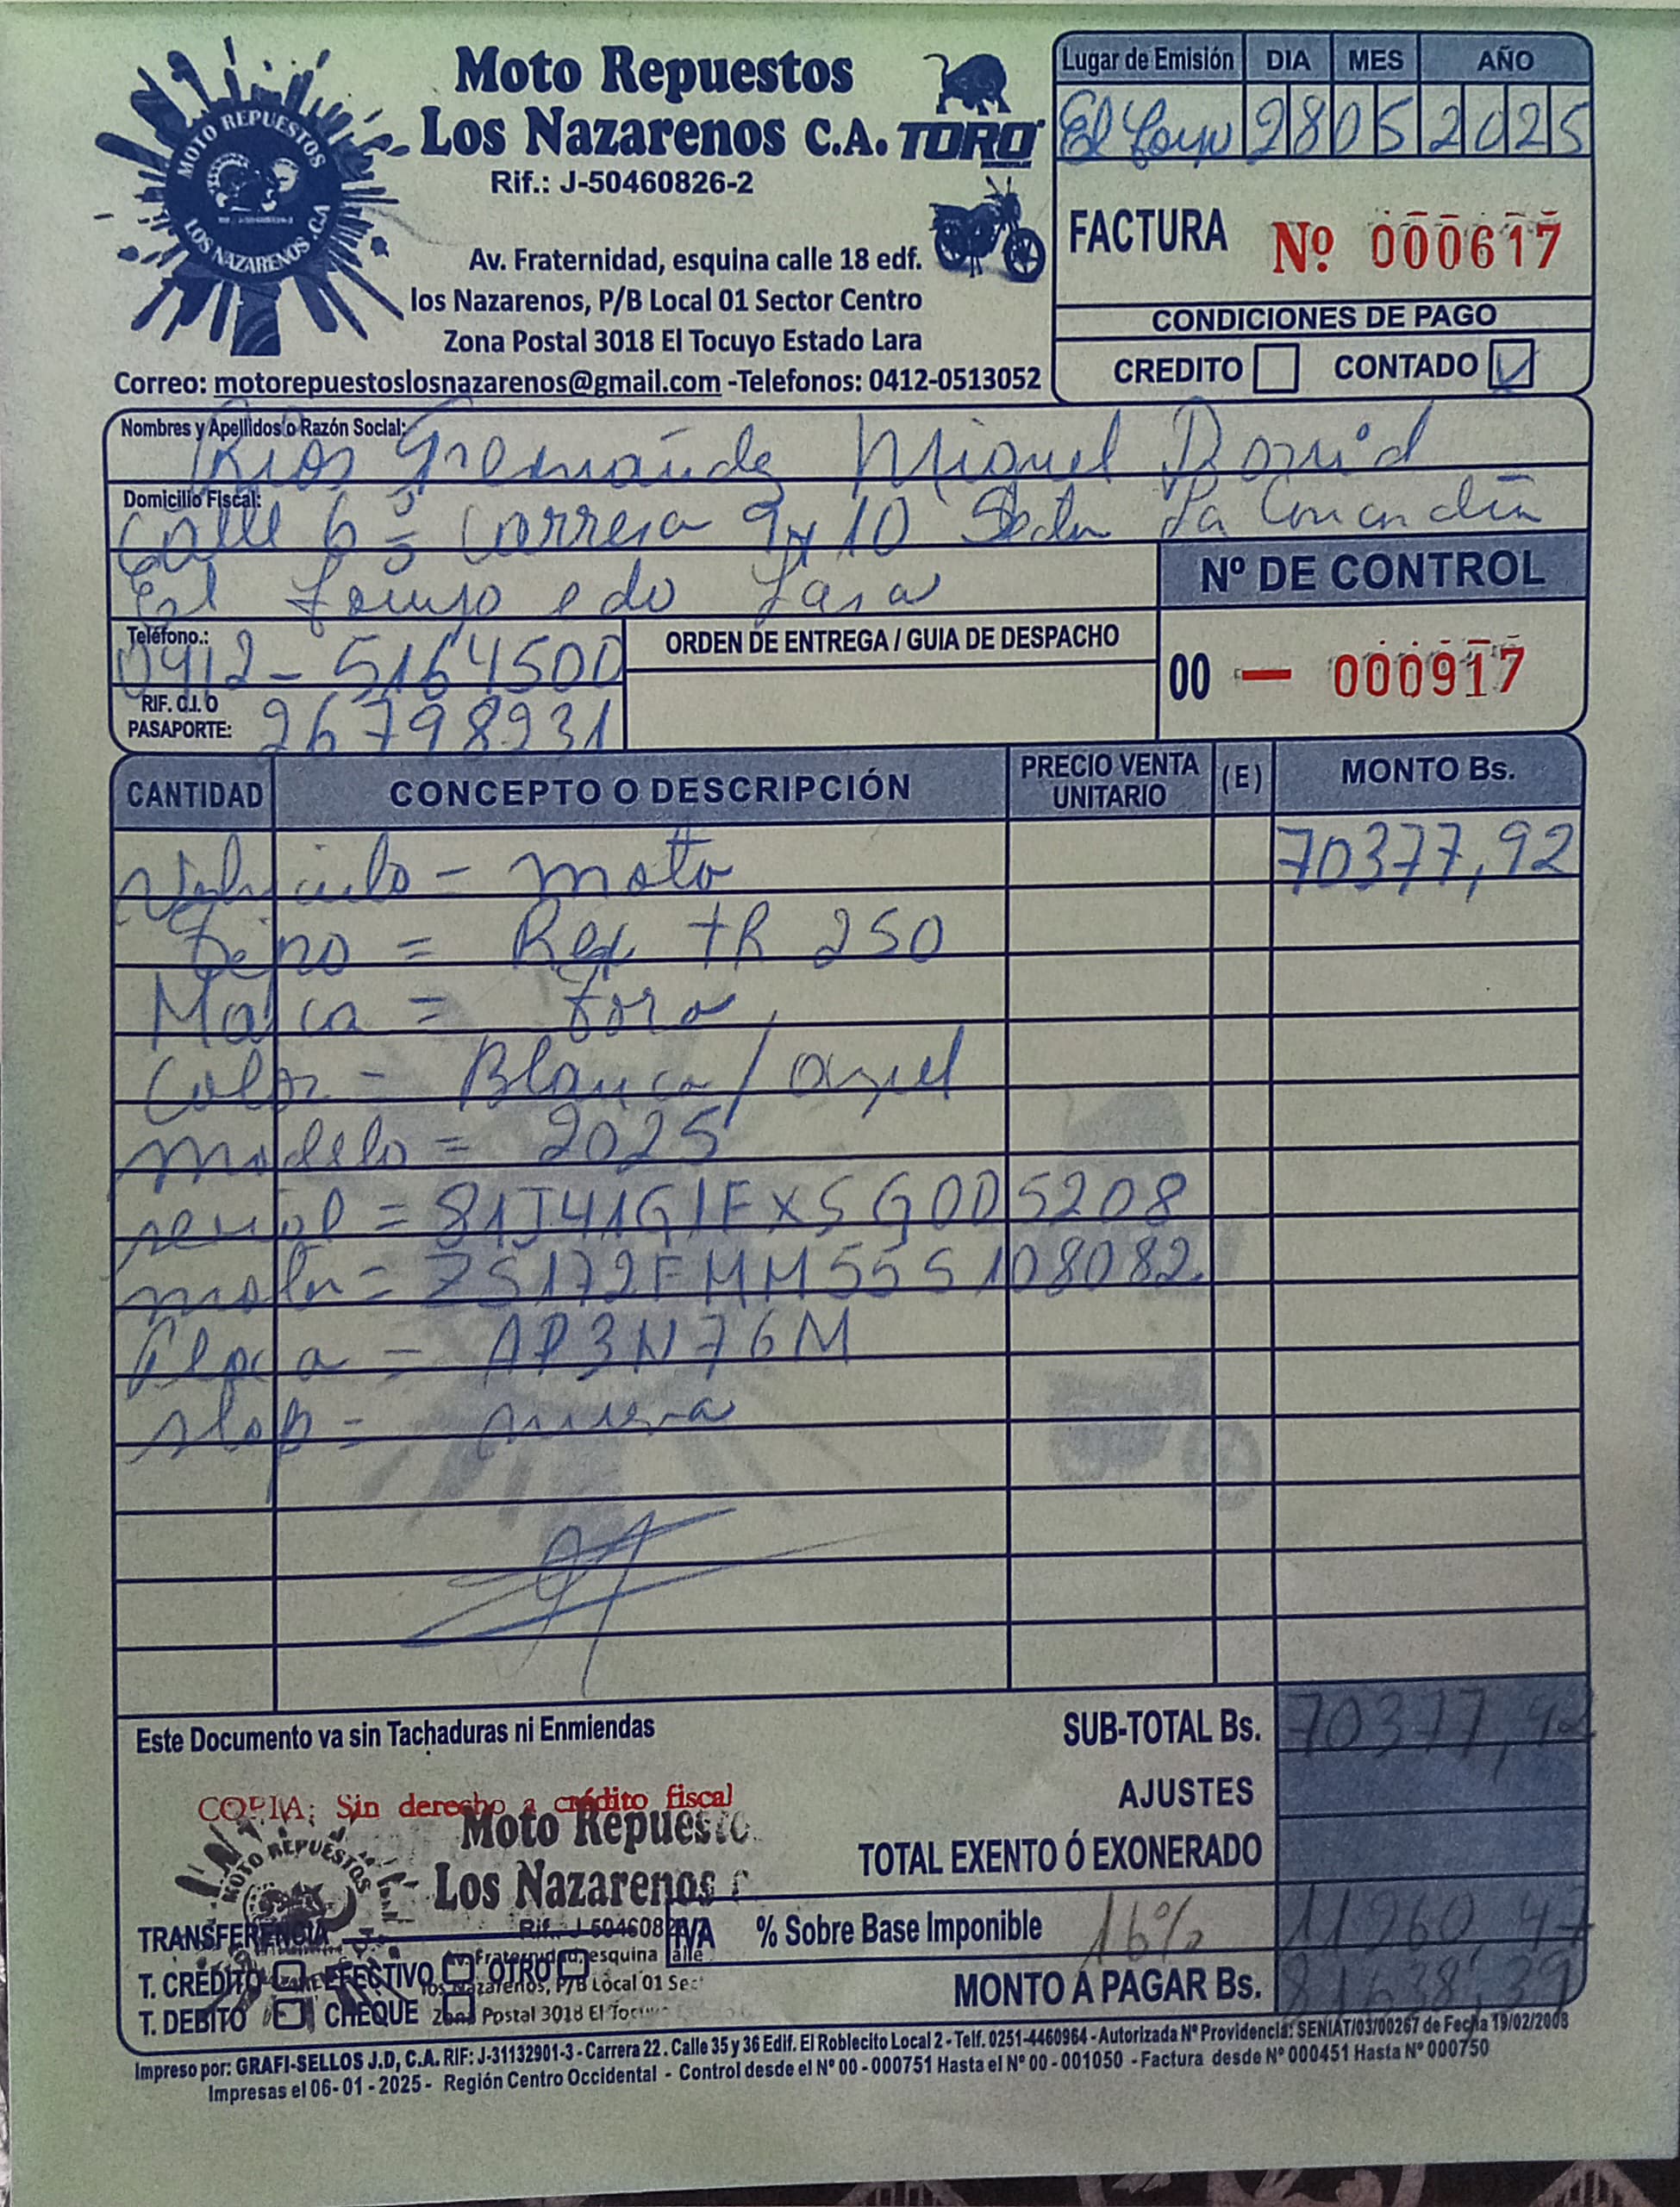 Moto Repuestos
Los Nazarenos C.A. TORO
Rif.: J-50460826-2
MOTO REPUESTOS
LOS NAZARENOS .C.A
Av. Fraternidad, esquina calle 18 edf.
los Nazarenos, P/B Local 01 Sector Centro
Zona Postal 3018 El Tocuyo Estado Lara
Correo: motorepuestoslosnazarenos@gmail.com -Telefonos: 0412-0513052
Lugar de Emisión DIA MES AÑO
El Tocuyo 28 05 2025
FACTURA Nº 000617
CONDICIONES DE PAGO
CREDITO CONTADO
Nombres y Apellidos o Razón Social:
Rios Miguel David
Domicilio Fiscal:
Calle 6 Carrera 9 y 10 Sector La
El Tocuyo edo Lara
Nº DE CONTROL
00 — 000917
Teléfono.: 0412-5164500
ORDEN DE ENTREGA / GUIA DE DESPACHO
RIF. C.I. O
PASAPORTE: 26798231
CANTIDAD CONCEPTO O DESCRIPCIÓN PRECIO VENTA UNITARIO (E) MONTO Bs.
Vehiculo - moto 70377,92
= Rex TR 250
Marca = Toro
Color - Blanca / azul
modelo = 2025
serial = 81J41G1FXSG005208
motor = ZS172FMM55S108082
Placa - AP3N76M
= nueva
Este Documento va sin Tachaduras ni Enmiendas
SUB-TOTAL Bs. 70377,92
AJUSTES
COPIA: Sin derecho a crédito fiscal
TOTAL EXENTO Ó EXONERADO
Moto Repuesto
Los Nazarenos
MOTO REPUESTOS
IVA % Sobre Base Imponible 16% 11260,47
TRANSFERENCIA
T. CRÉDITO EFECTIVO OTRO
T. DEBITO CHEQUE
Rif.: J-504608
Av. Fraternidad, esquina
los Nazarenos, P/B Local 01 Sec
Zona Postal 3018 El Tocu
MONTO A PAGAR Bs. 81638,39
Impreso por: GRAFI-SELLOS J.D, C.A. RIF: J-31132901-3 - Carrera 22 . Calle 35 y 36 Edif. El Roblecito Local 2 - Telf. 0251-4460964 - Autorizada Nº Providencia: SENIAT/03/00267 de Fecha 19/02/2008
Impresas el 06- 01 - 2025 - Región Centro Occidental - Control desde el Nº 00 - 000751 Hasta el Nº 00 - 001050 - Factura desde Nº 000451 Hasta Nº 000750